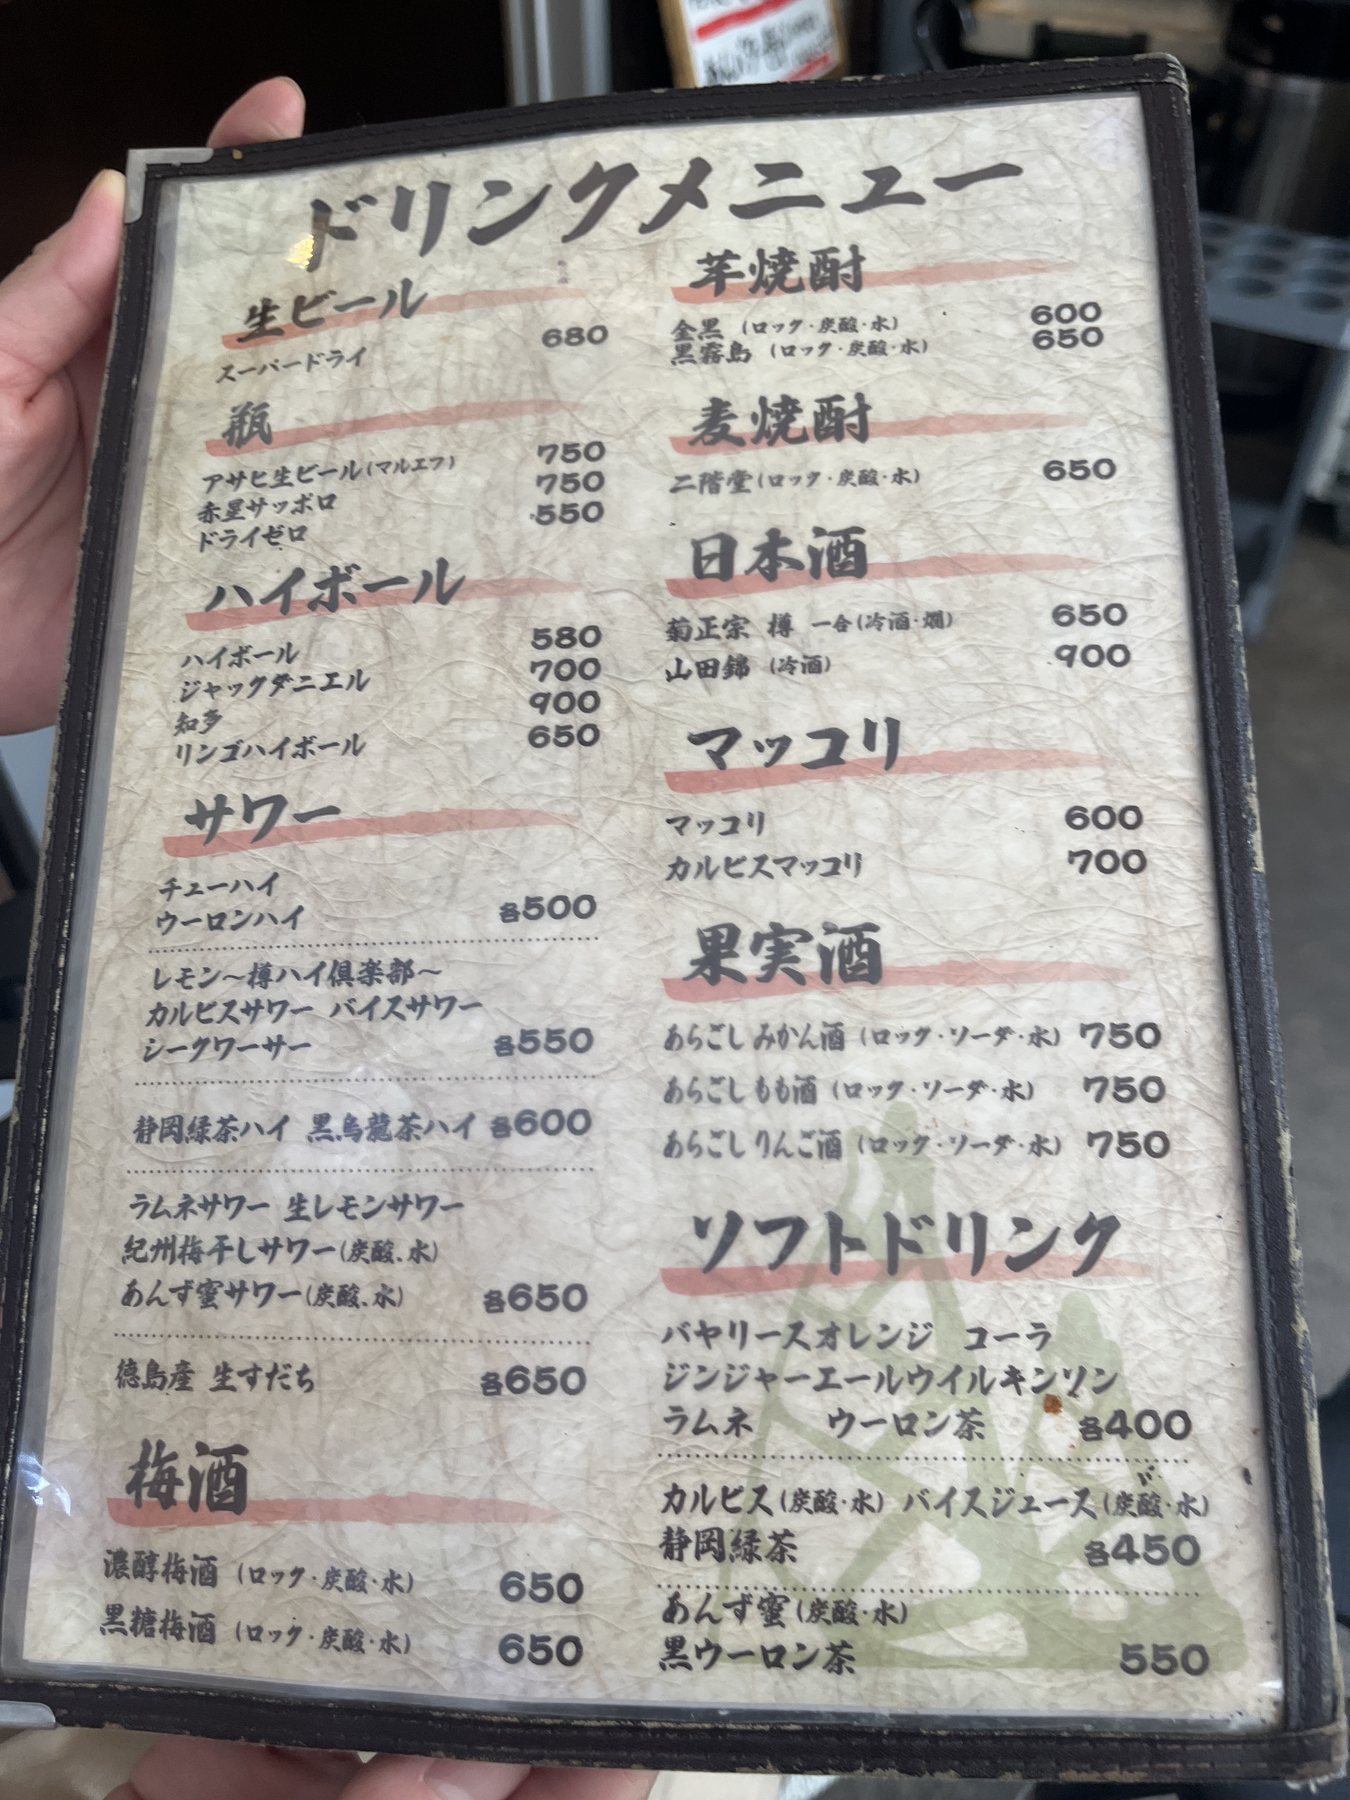 ドリンクメニュー
生ビール
スーパードライ 680
瓶
アサヒ生ビール(マルエフ) 750
赤星サッポロ 750
ドライゼロ 550
ハイボール
ハイボール 580
ジャックダニエル 700
知多 900
リンゴハイボール 650
サワー
チューハイ
ウーロンハイ 各500
レモン〜樽ハイ倶楽部〜
カルピスサワー バイスサワー
シークワーサー 各550
静岡緑茶ハイ 黒烏龍茶ハイ 各600
ラムネサワー 生レモンサワー
紀州梅干しサワー(炭酸、水)
あんず蜜サワー(炭酸、水) 各650
徳島産 生すだち 各650
梅酒
濃醇梅酒 (ロック・炭酸・水) 650
黒糖梅酒 (ロック・炭酸・水) 650
芋焼酎
金黒 (ロック・炭酸・水) 600
黒霧島 (ロック・炭酸・水) 650
麦焼酎
二階堂(ロック・炭酸・水) 650
日本酒
菊正宗 樽 一合(冷酒・燗) 650
山田錦 (冷酒) 900
マッコリ
マッコリ 600
カルピスマッコリ 700
果実酒
あらごしみかん酒 (ロック・ソーダ・水) 750
あらごしもも酒 (ロック・ソーダ・水) 750
あらごしりんご酒 (ロック・ソーダ・水) 750
ソフトドリンク
バヤリースオレンジ コーラ
ジンジャーエールウイルキンソン
ラムネ ウーロン茶 各400
カルピス(炭酸・水) バイスジュース(炭酸・水)
静岡緑茶 各450
あんず蜜(炭酸・水)
黒ウーロン茶 550